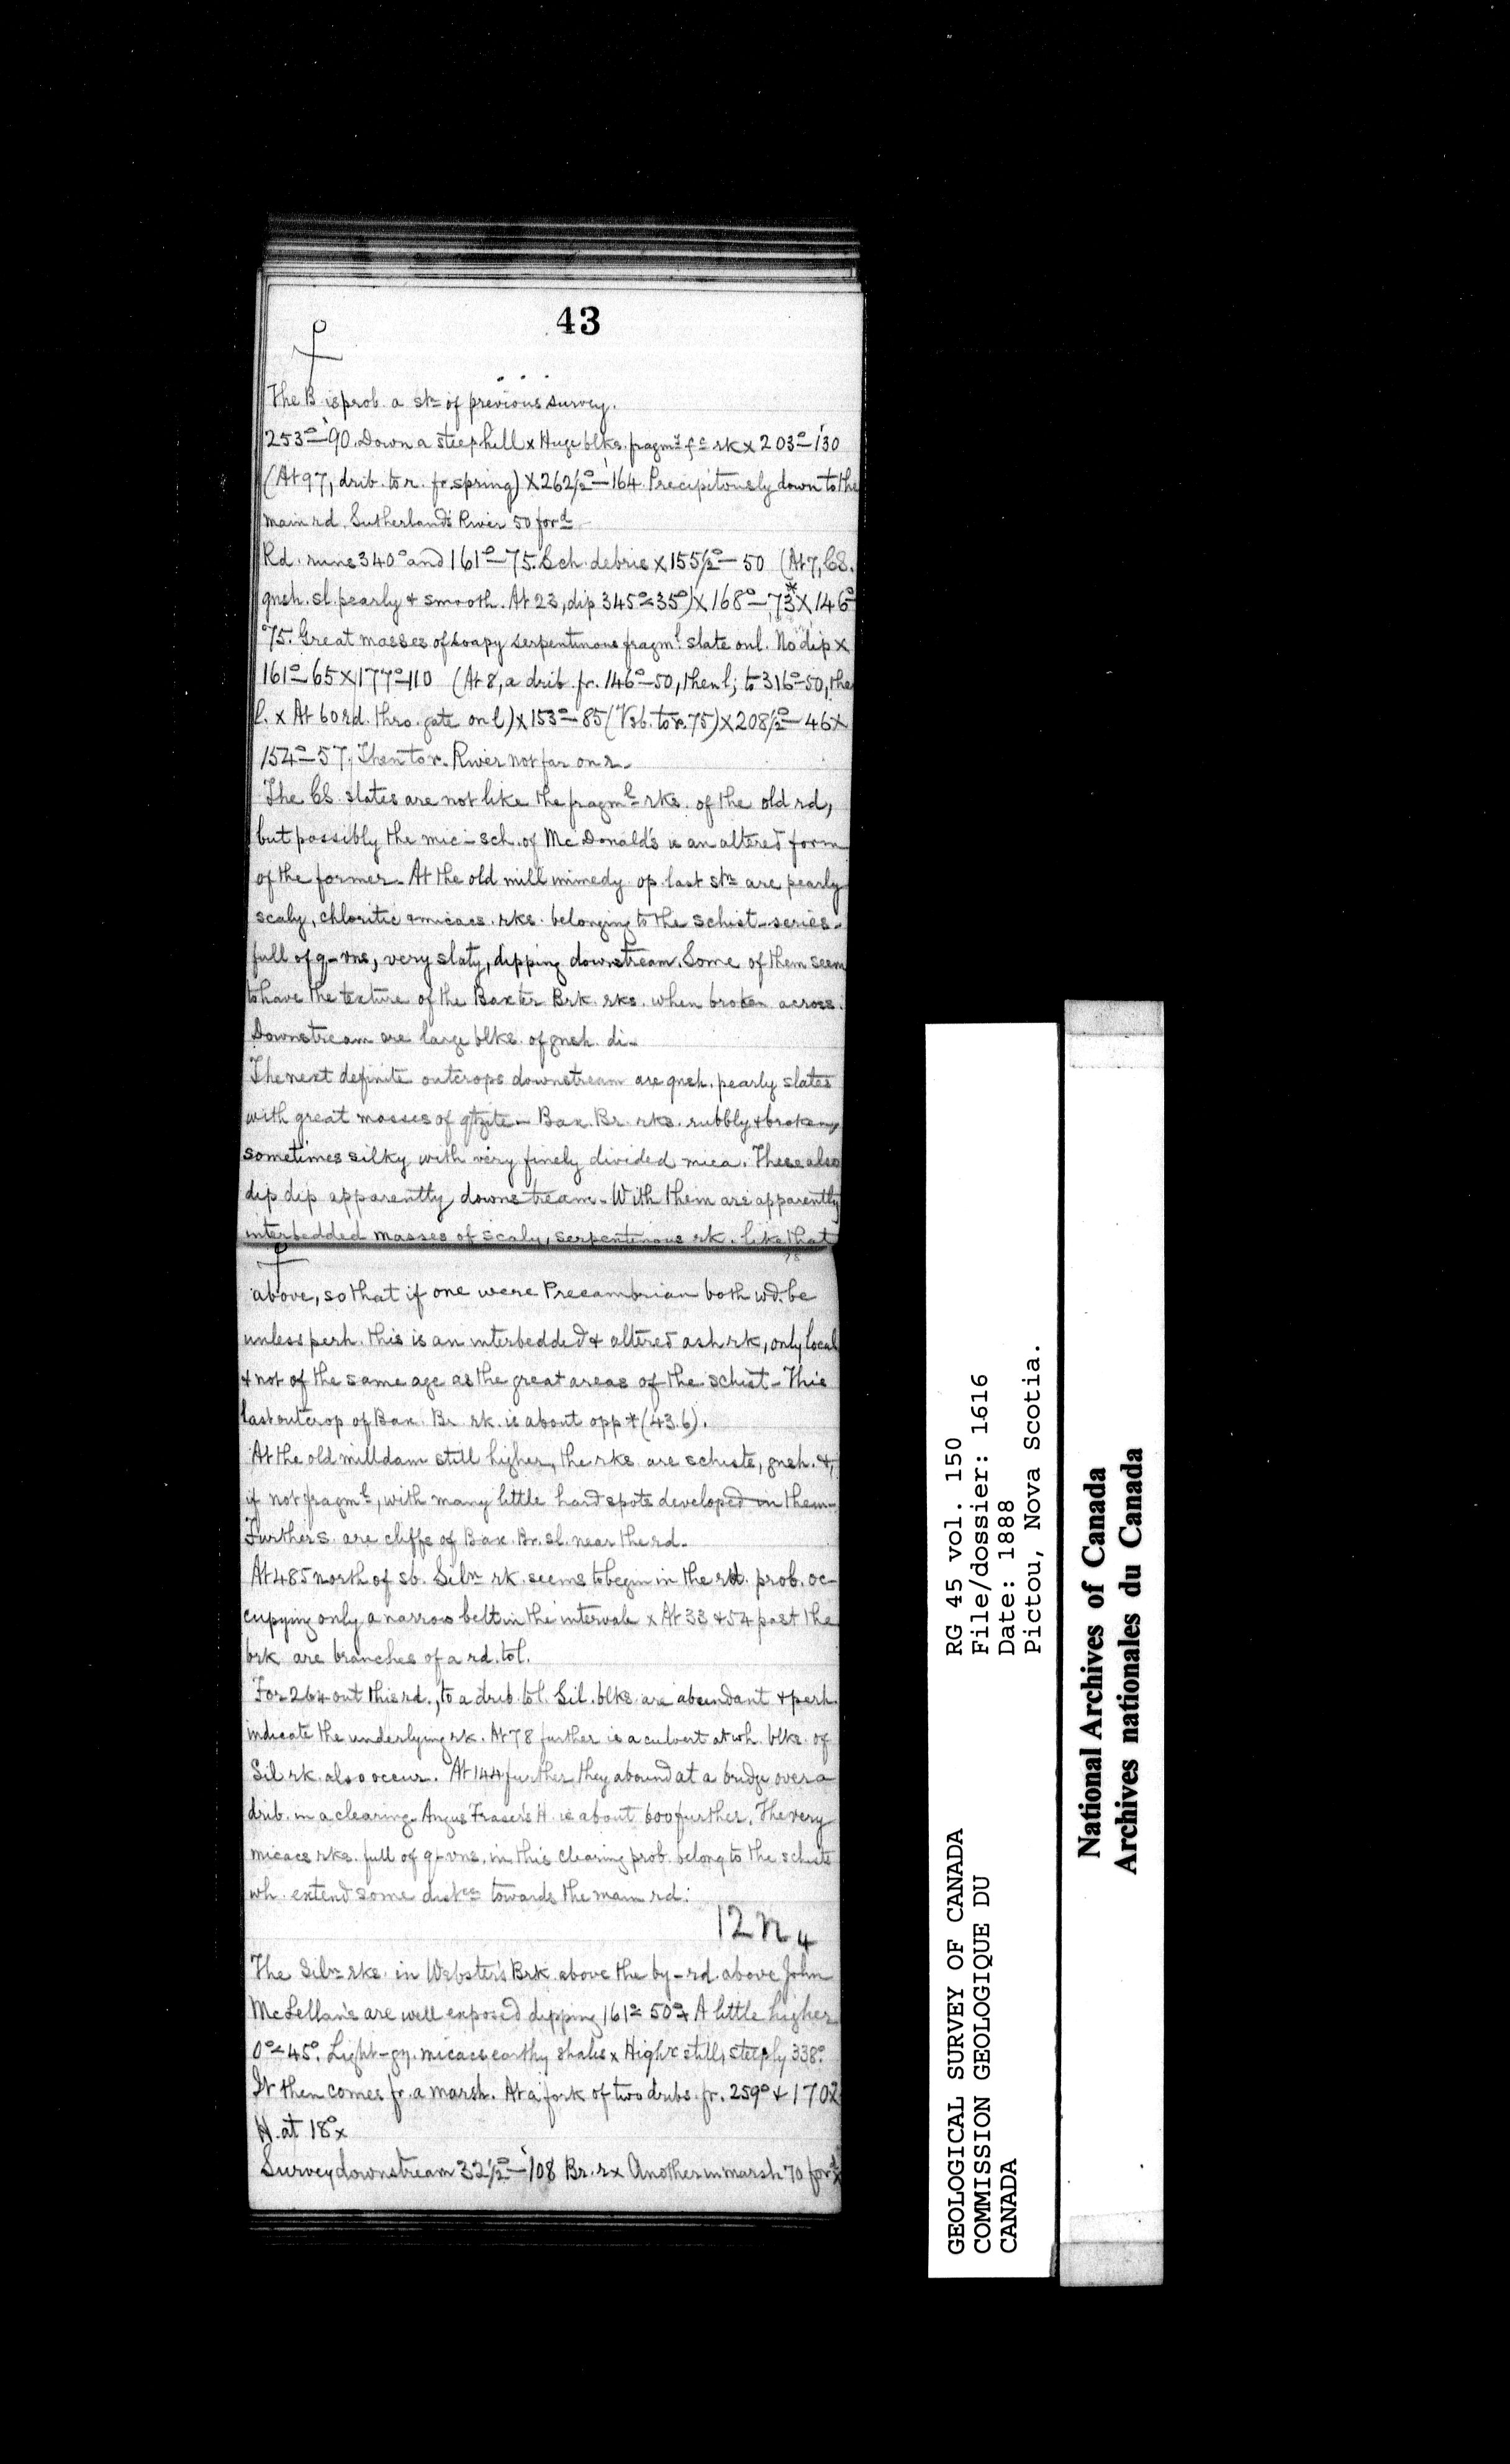 43
The B is prob. a stn of previous survey.
253°–90. Down a steep hill x Huge blks. fragml f c rk x 203°–130
(At 97, drib. to r. fr. spring) X 262½°–164. Precipitously down to the
main rd. Sutherland's River 50 ford
Rd. runs 340° and 161°–75. Sch. debris x 155½°–50 (At 7, CS.
gnsh. sl. pearly & smooth. At 23, dip 345°<35°) X 168°–73* X 146°
75. Great masses of soapy serpentinous fragml slate onl. No dip x
161°–65 X 177°–110 (At 8, a drib. fr. 146°–50, then l; to 316°–50, the
l. x At 60 rd. thro. gate on l) x 153°–85 (Vsb. to r. 75) x 208½°–46 x
154°–57. Then to r. River not far on r.
The CS. slates are not like the fragml rks. of the old rd,
but possibly the mic-sch. of McDonald's is an altered form
of the former. At the old mill immedy. op. last stn are pearly
scaly, chloritic & micacs. rks. belonging to the schist-series-
full of q-vns, very slaty, dipping downstream. Some of them seem
to have the texture of the Baxter Brk. rks. when broken across.
Downstream are large blks. of gnsh. di-
The next definite outcrops downstream are gnsh. pearly slates
with great masses of qtzite – Bax. Br. rks. rubbly & broken,
sometimes silky with very finely divided mica. These also
dip dip apparently downstream. With them are apparently
interbedded masses of scaly, serpentinous rk. like that
78
above, so that if one were Precambrian both wd. be
unless perh. this is an interbedded & altered ash rk, only local
& not of the same age as the great areas of the schist – This
last outcrop of Bax. Br. rk. is about opp * (43.6).
At the old milldam still higher, the rks. are schists, gnsh. &,
if not fragml, with many little hard spots developed in them.
Further S. are cliffs of Bax. Br. sl. near the rd.
At 485 north of sb. Siln rk. seems to begin in the rd. prob. oc-
cupying only a narrow belt in the intervale x At 33 & 54 past the
brk are branches of a rd. to l.
For 264 out this rd., to a drib. to l. Sil. blks. are abundant & perh.
indicate the underlying rk. At 78 further is a culvert at wh. blks. of
Sil rk. also occur. At 144 further they abound at a bridge over a
drib. in a clearing. Angus Fraser's H. is about 600 further. The very
micacs rks. full of q-vns. in this clearing prob. belong to the schists
wh. extend some distce towards the main rd.
12 n 4
The Siln rks. in Webster's Brk. above the by-rd. above John
McLellan's are well exposed dipping 161°<50° x A little higher
0°<45°. Light-gy. micacs earthy shales x Highr still, steeply 338°.
It then comes fr. a marsh. At a fork of two dribs. fr. 259° & 170½
H. at 18° x
Survey downstream 32½°–108 Br. r x Another in marsh 70 ford x
RG 45 vol. 150
File/dossier: 1616
Date: 1888
Pictou, Nova Scotia.
GEOLOGICAL SURVEY OF CANADA
COMMISSION GEOLOGIQUE DU
CANADA
National Archives of Canada
Archives nationales du Canada